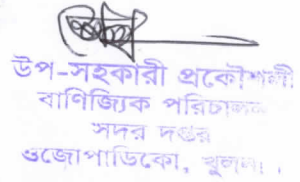 উপ-সহকারী প্রকৌশলী
বাণিজ্যিক পরিচালন
সদর দপ্তর
ওজোপাডিকো, খুলনা।